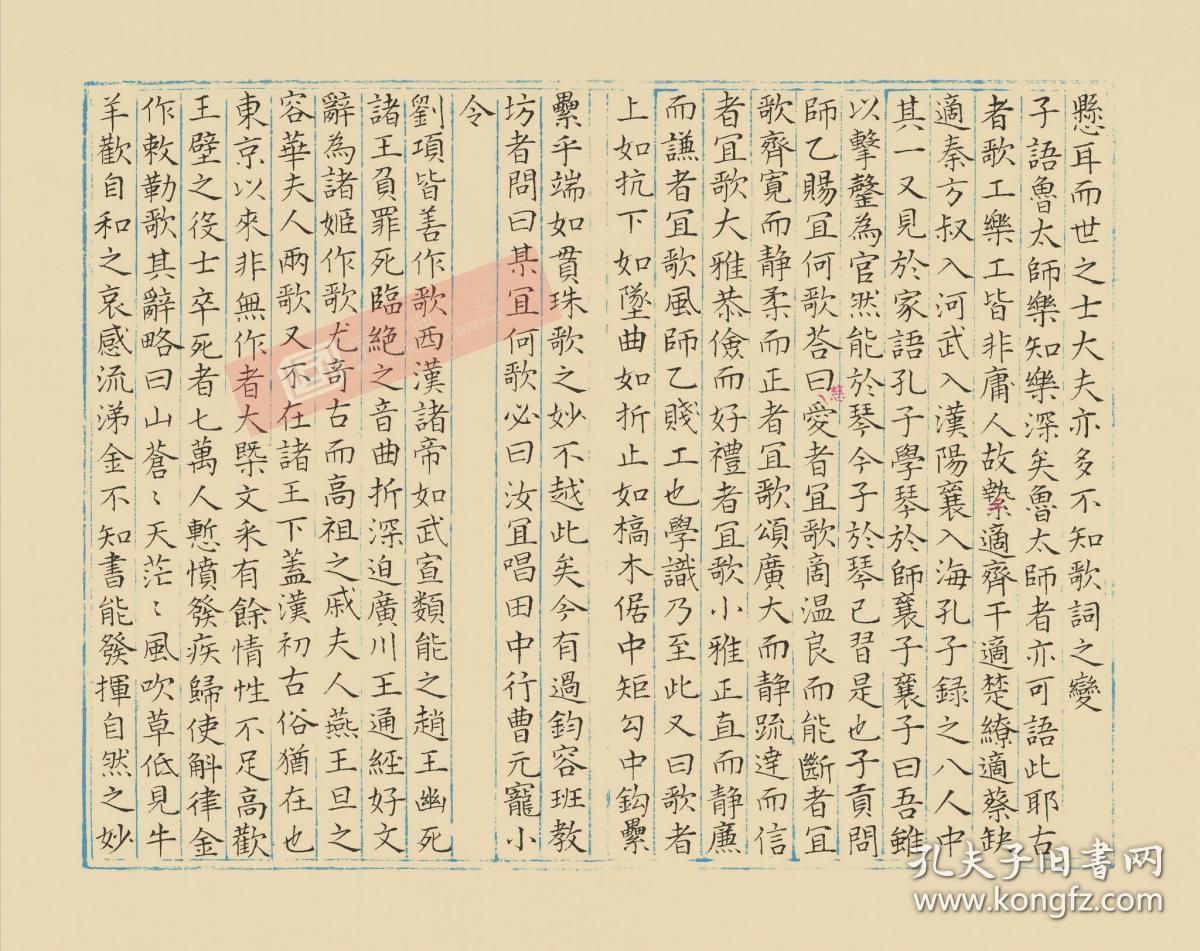 懸耳而世之士大夫亦多不知歌詞之變
子語魯太師樂知樂深矣魯太師者亦可語此耶古
者歌工樂工皆非庸人故摯適齊干適楚繚適蔡缺
適秦方叔入河武入漢陽襄入海孔子録之八人中
其一又見於家語孔子學琴於師襄子襄子曰吾雖
以擊磬為官然能於琴今子於琴已習是也子貢問
師乙賜冝何歌荅曰慈愛者冝歌商温良而能斷者冝
歌齊寛而静柔而正者冝歌頌廣大而静疏達而信
者冝歌大雅恭儉而好禮者冝歌小雅正直而静廉
而謙者冝歌風師乙賤工也學識乃至此又曰歌者
上如抗下如墜曲如折止如槁木倨中矩勾中鈎纍
纍乎端如貫珠歌之妙不越此矣今有過鈞容班教
坊者問曰某冝何歌必曰汝冝唱田中行曹元寵小
令
劉項皆善作歌西漢諸帝如武宣類能之趙王幽死
諸王負罪死臨絶之音曲折深迫廣川王通經好文
辭為諸姬作歌尤竒古而高祖之戚夫人燕王旦之
容華夫人兩歌又不在諸王下蓋漢初古俗猶在也
東京以來非無作者大槩文采有餘情性不足高歡
王壁之役士卒死者七萬人慙憤發疾歸使斛律金
作敕勒歌其辭略曰山蒼〻天茫〻風吹草低見牛
羊歡自和之哀感流涕金不知書能發揮自然之妙
孔夫子旧書网
www.kongfz.com